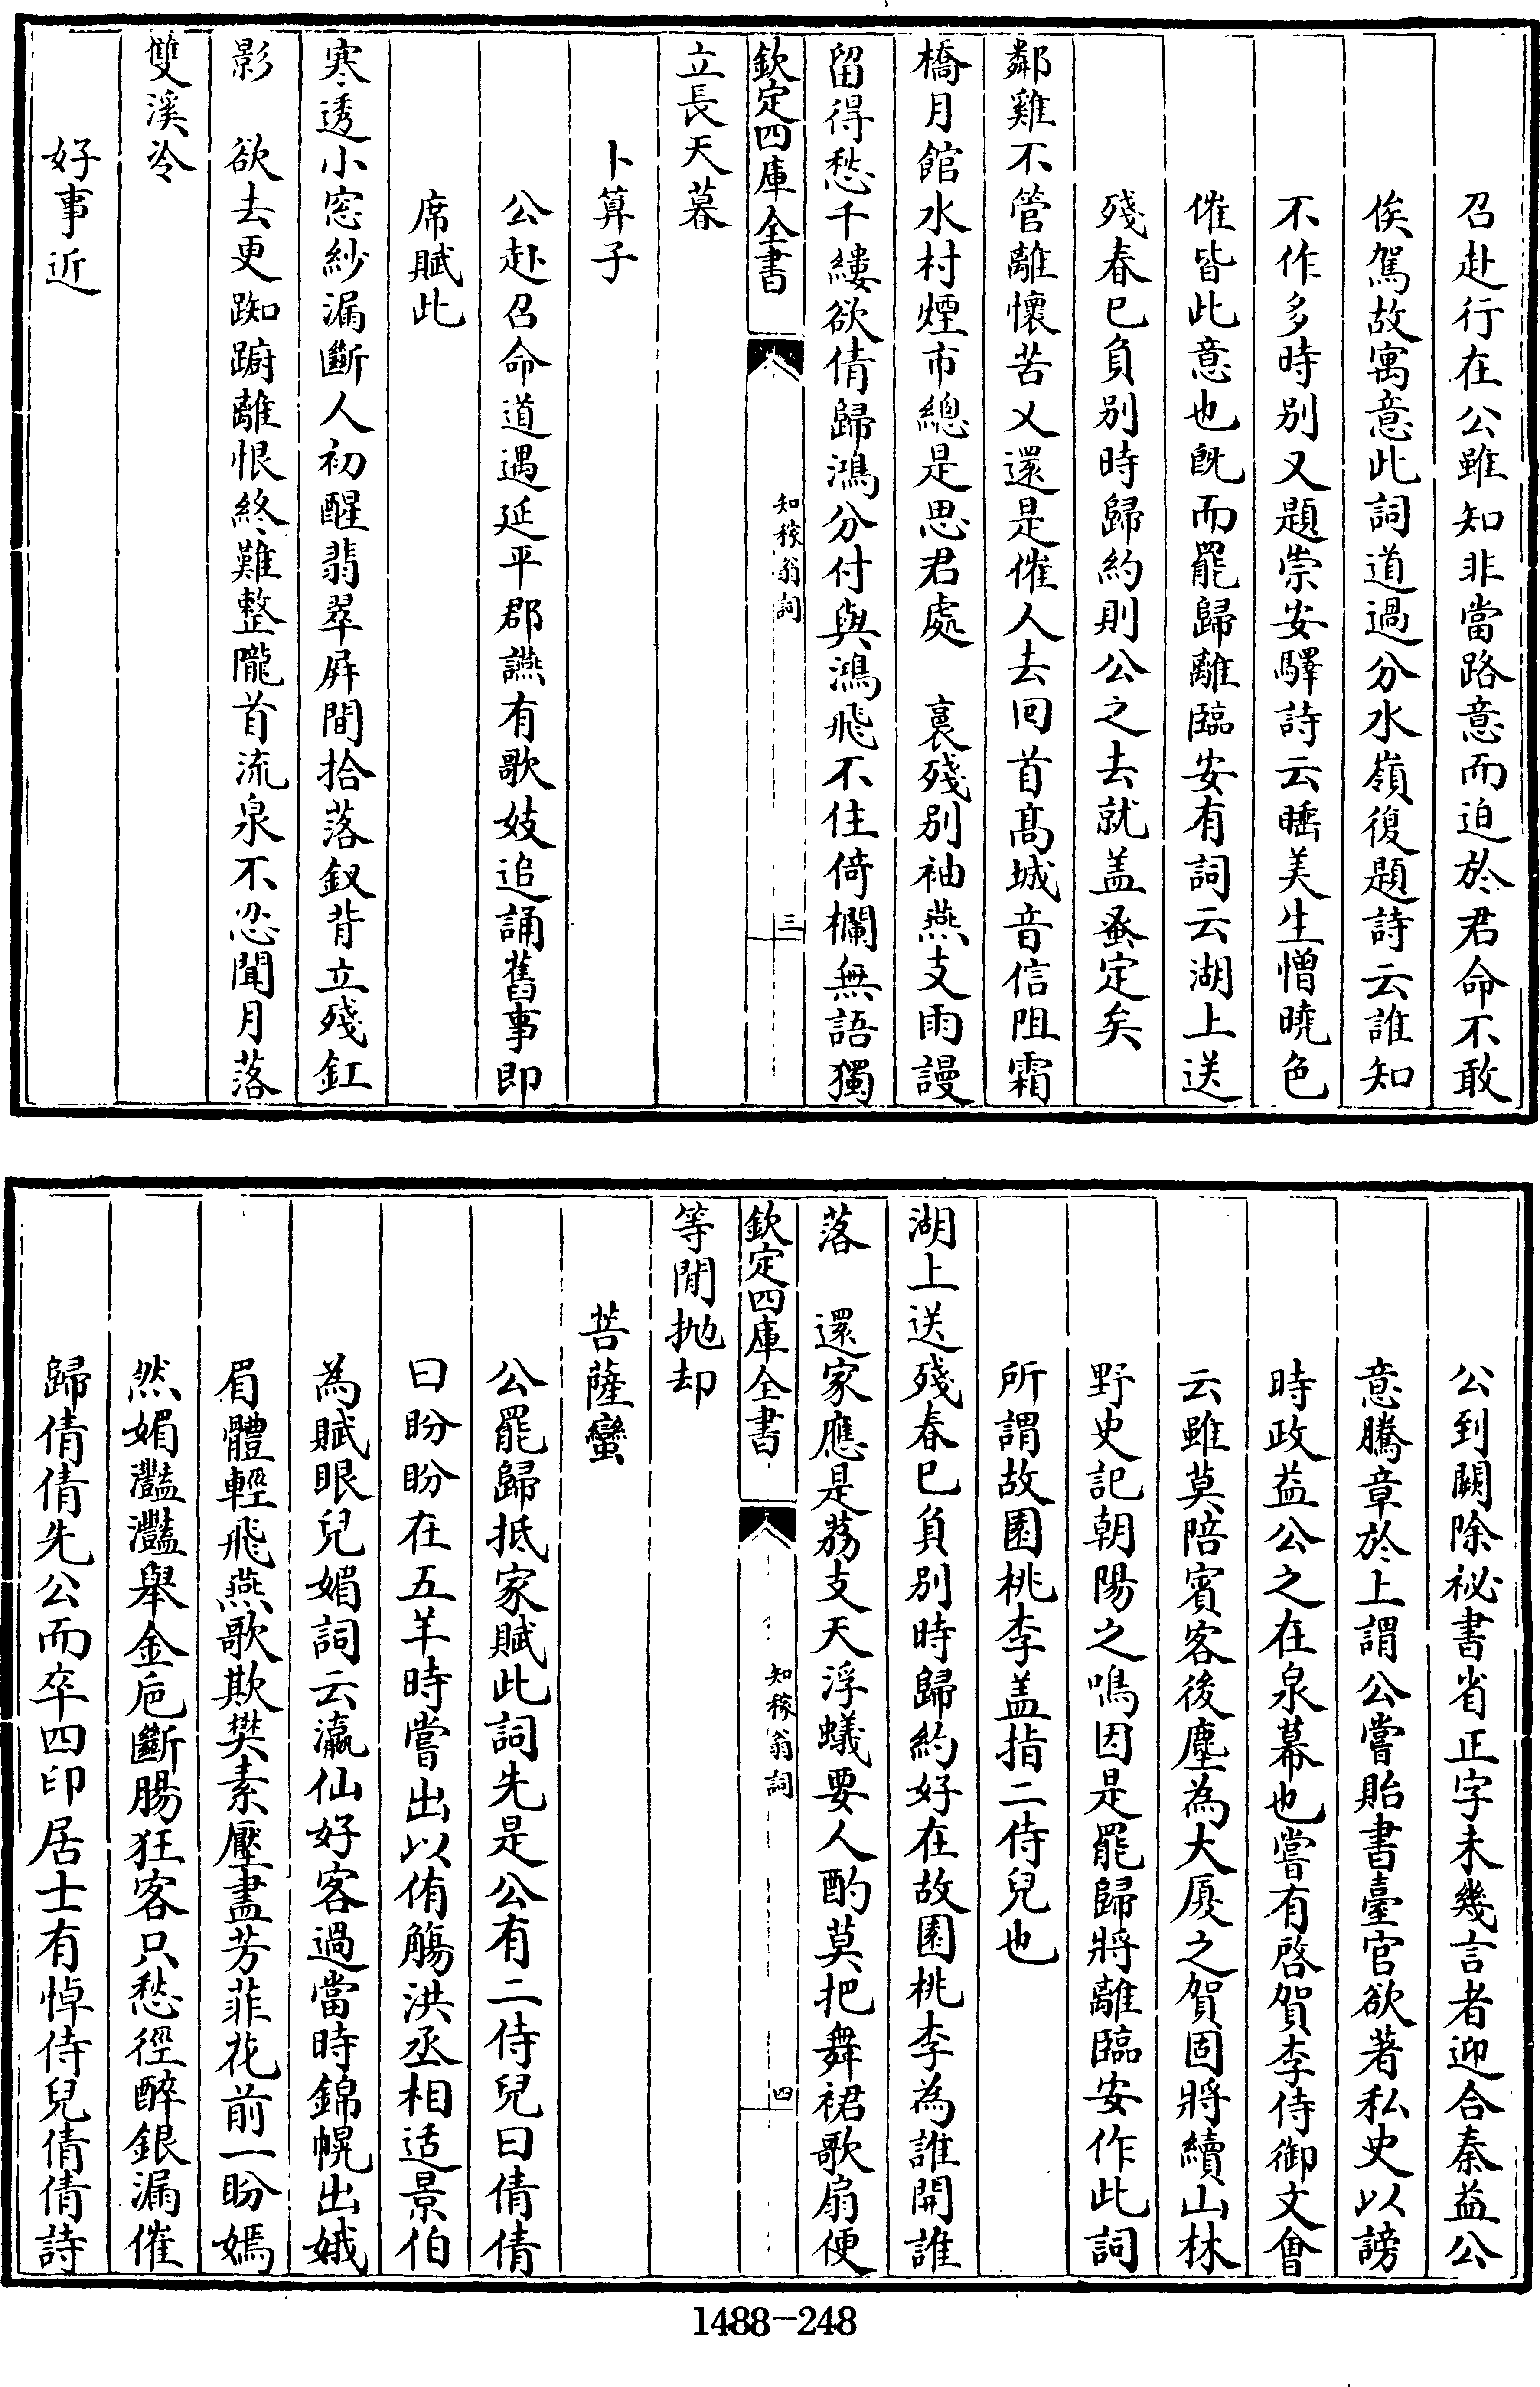 召赴行在公雖知非當路意而迫於君命不敢
俟駕故寓意此詞道過分水嶺復題詩云誰知
不作多時別又題崇安驛詩云睡美生憎曉色
催皆此意也既而罷歸離臨安有詞云湖上送
殘春已負別時歸約則公之去就盖蚤定矣
鄰雞不管離懷苦又還是催人去回首髙城音信阻霜
橋月館水村煙市總是思君處　裛殘別袖燕支雨謾
留得愁千縷欲倩歸鴻分付與鴻飛不住倚欄無語獨
欽定四庫全書
知稼翁詞
三
立長天暮
卜算子
公赴召命道遇延平郡讌有歌妓追誦舊事即
席賦此
寒透小窓紗漏斷人初醒翡翠屏間拾落釵背立殘釭
影　欲去更踟躕離恨終難整隴首流泉不忍聞月落
雙溪冷
好事近
公到闕除祕書省正字未幾言者迎合秦益公
意騰章於上謂公嘗貽書臺官欲著私史以謗
時政益公之在泉幕也嘗有啓賀李侍御文會
云雖莫陪賓客後塵為大厦之賀固將續山林
野史記朝陽之鳴因是罷歸將離臨安作此詞
所謂故園桃李盖指二侍兒也
湖上送殘春已負別時歸約好在故園桃李為誰開誰
落　還家應是荔支天浮蟻要人酌莫把舞裙歌扇便
欽定四庫全書
知稼翁詞
四
等閒抛却
菩薩蠻
公罷歸抵家賦此詞先是公有二侍兒曰倩倩
曰盼盼在五羊時嘗出以侑觴洪丞相适景伯
為賦眼兒媚詞云瀛仙好客過當時錦幌出娥
眉體輕飛燕歌欺樊素壓盡芳菲花前一盼嫣
然媚灩灩舉金巵斷腸狂客只愁徑醉銀漏催
歸倩倩先公而卒四印居士有悼侍兒倩倩詩
1488-248